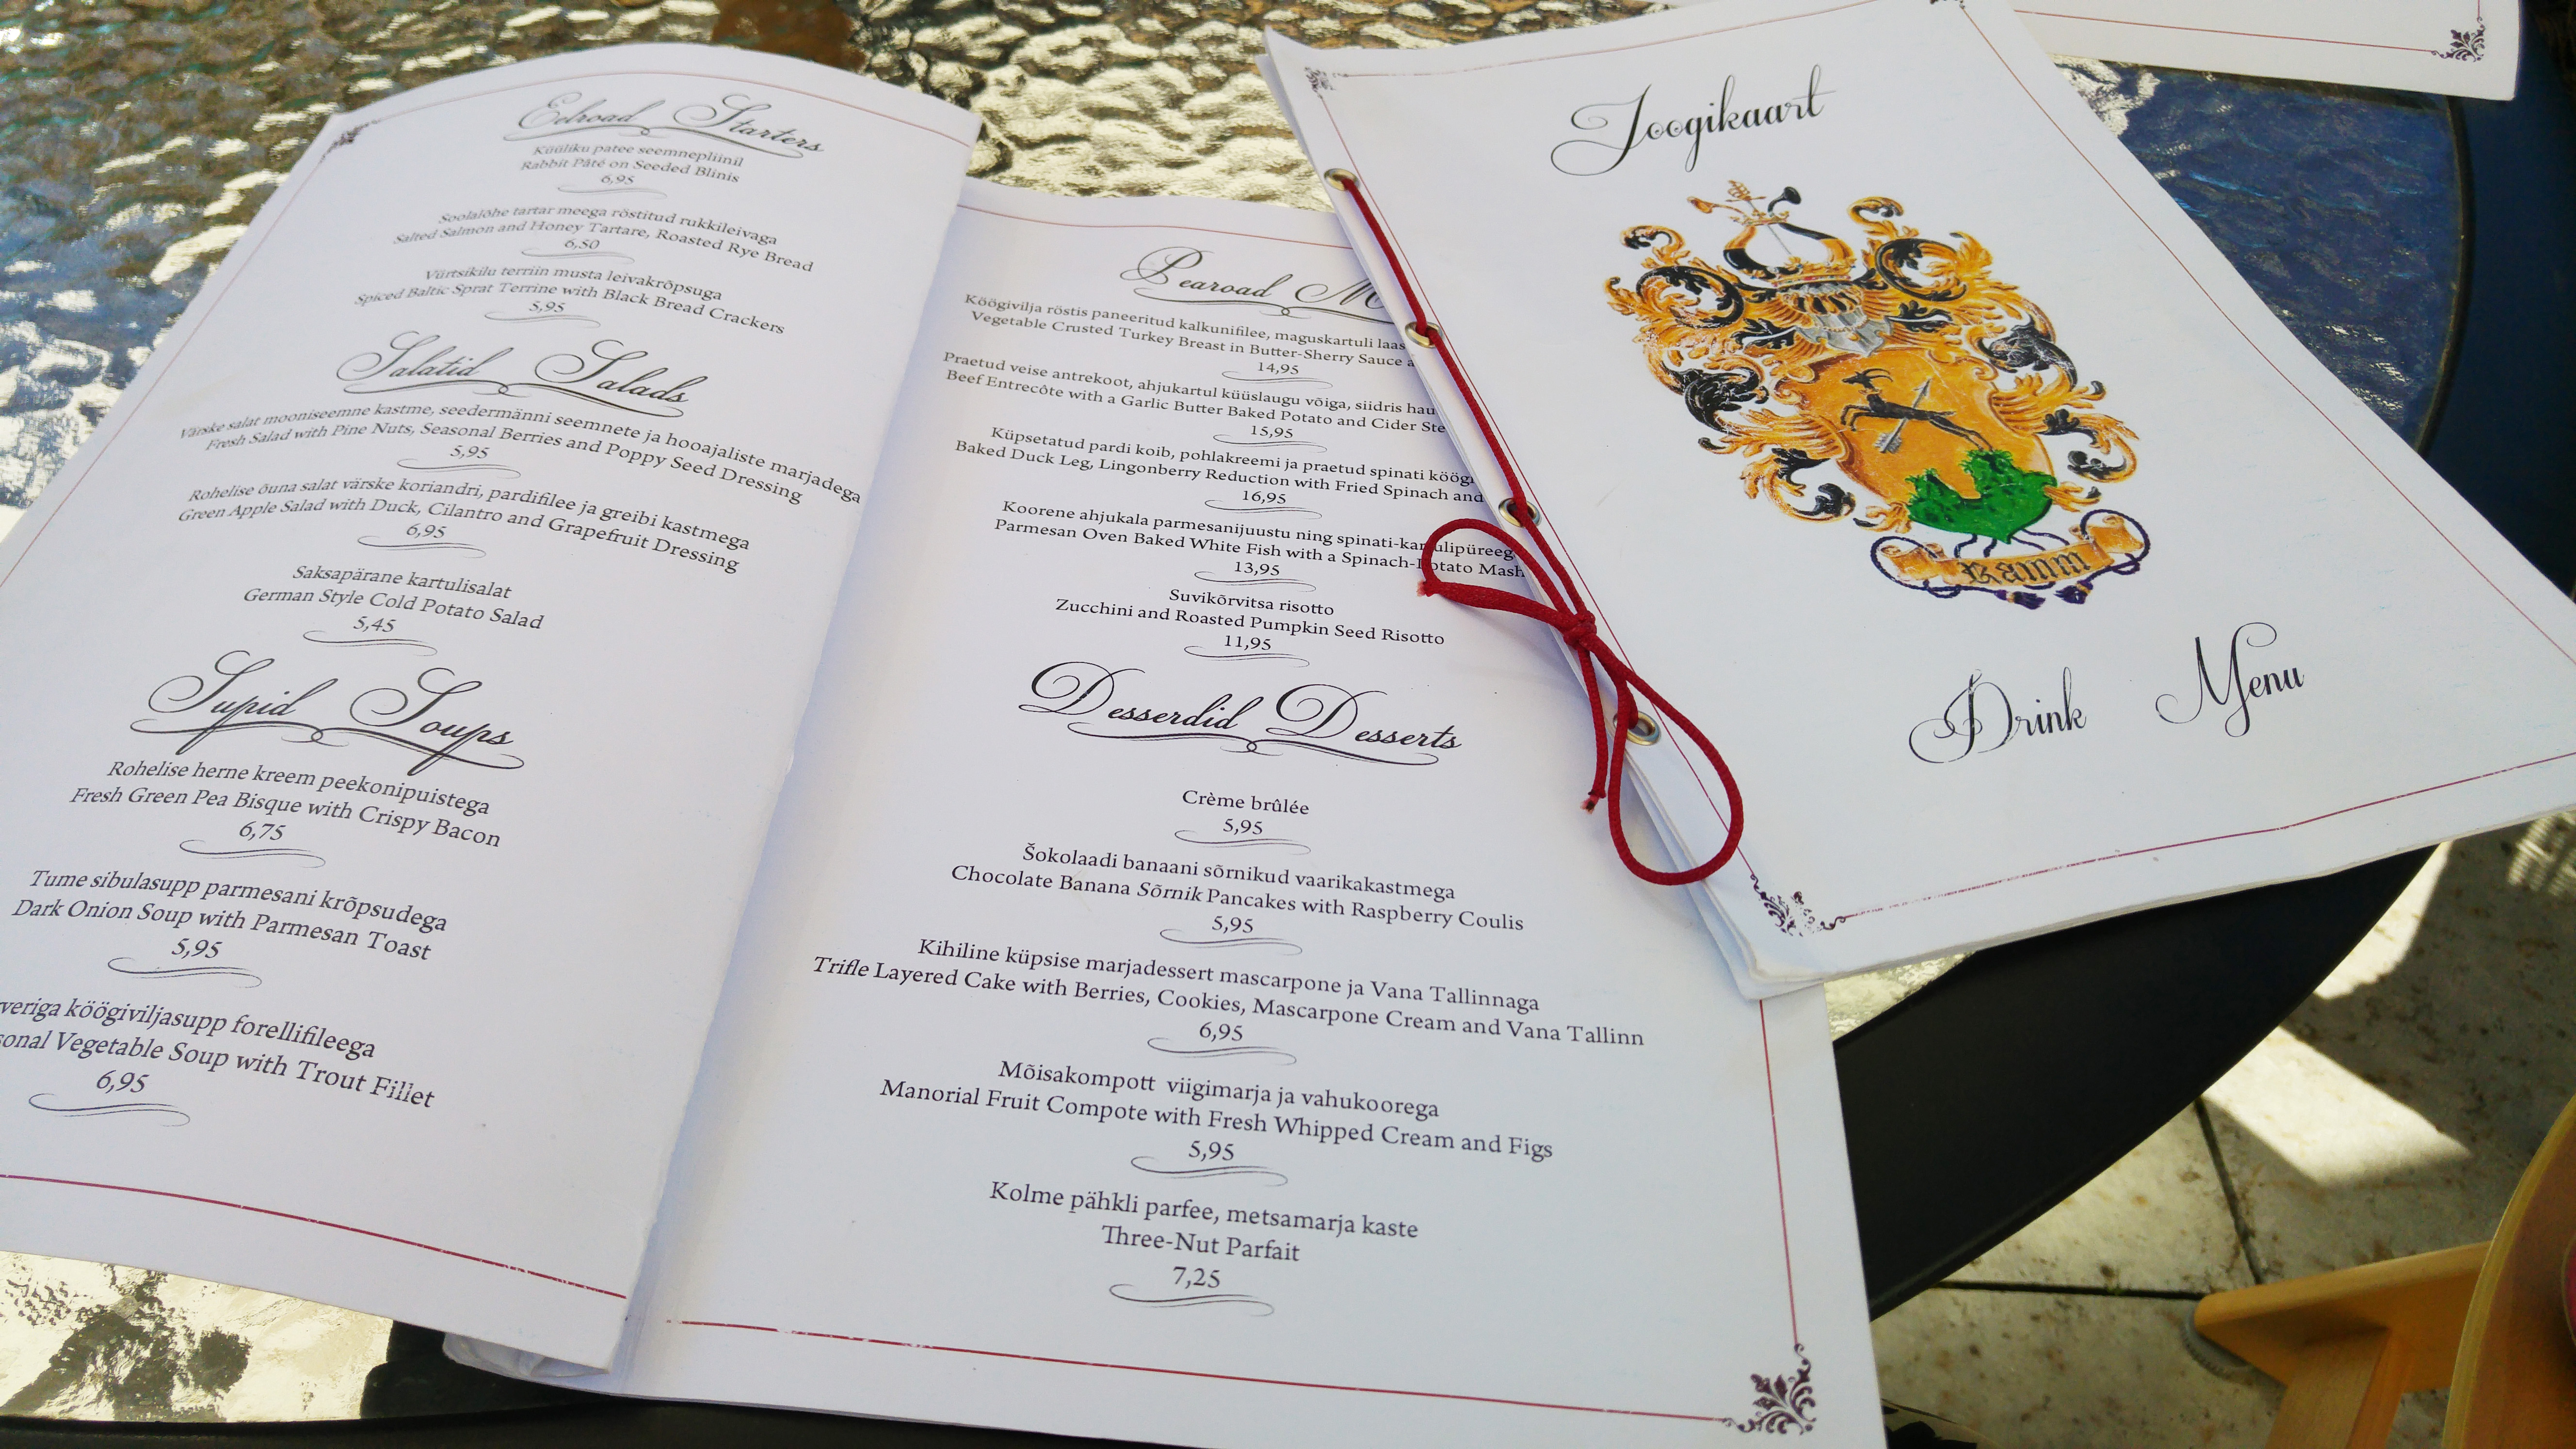 Eelroad Starters
Küüliku patee seemnepliinil
Rabbit Pâté on Seeded Blinis
6,95
Soolalõhe tartar meega röstitud rukkileivaga
Salted Salmon and Honey Tartare, Roasted Rye Bread
6,50
Vürtsikilu terriin musta leivakrõpsuga
Spiced Baltic Sprat Terrine with Black Bread Crackers
5,95
Salatid Salads
Värske salat mooniseemne kastme, seedermänni seemnete ja hooajaliste marjadega
Fresh Salad with Pine Nuts, Seasonal Berries and Poppy Seed Dressing
5,95
Rohelise õuna salat värske koriandri, pardifilee ja greibi kastmega
Green Apple Salad with Duck, Cilantro and Grapefruit Dressing
6,95
Saksapärane kartulisalat
German Style Cold Potato Salad
5,45
Supid Soups
Rohelise herne kreem peekonipuistega
Fresh Green Pea Bisque with Crispy Bacon
6,75
Tume sibulasupp parmesani krõpsudega
Dark Onion Soup with Parmesan Toast
5,95
veriga köögiviljasupp forellifileega
sonal Vegetable Soup with Trout Fillet
6,95
Pearoad M
Köögivilja röstis paneeritud kalkunifilee, maguskartuli laas
Vegetable Crusted Turkey Breast in Butter-Sherry Sauce a
14,95
Praetud veise antrekoot, ahjukartul küüslaugu võiga, siidris hau
Beef Entrecôte with a Garlic Butter Baked Potato and Cider Ste
15,95
Küpsetatud pardi koib, pohlakreemi ja praetud spinati köög
Baked Duck Leg, Lingonberry Reduction with Fried Spinach and
16,95
Koorene ahjukala parmesanijuustu ning spinati-kartulipüreeg
Parmesan Oven Baked White Fish with a Spinach-Potato Mash
13,95
Suvikõrvitsa risotto
Zucchini and Roasted Pumpkin Seed Risotto
11,95
Desserdid Desserts
Crème brûlée
5,95
Šokolaadi banaani sõrnikud vaarikakastmega
Chocolate Banana Sõrnik Pancakes with Raspberry Coulis
5,95
Kihiline küpsise marjadessert mascarpone ja Vana Tallinnaga
Trifle Layered Cake with Berries, Cookies, Mascarpone Cream and Vana Tallinn
6,95
Mõisakompott viigimarja ja vahukoorega
Manorial Fruit Compote with Fresh Whipped Cream and Figs
5,95
Kolme pähkli parfee, metsamarja kaste
Three-Nut Parfait
7,25
Joogikaart
Ramm
Drink Menu